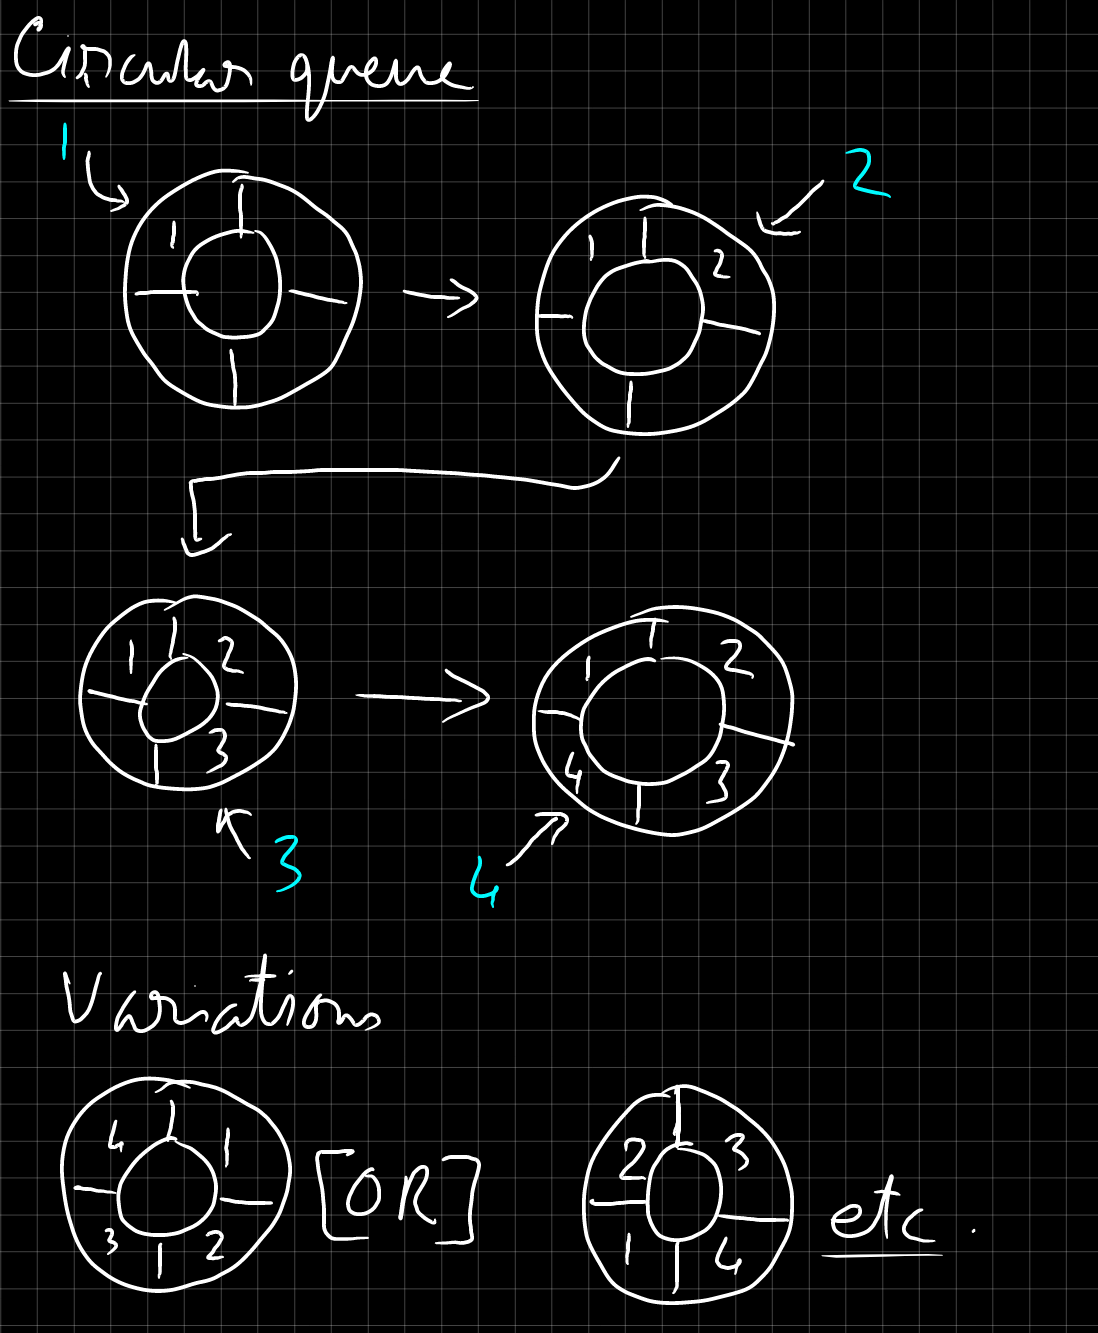 Circular queue
1
2
1
1 2
1 2
3
1 2
4 3
3
4
Variations
4 1
3 2
[OR]
2 3
1 4
etc.